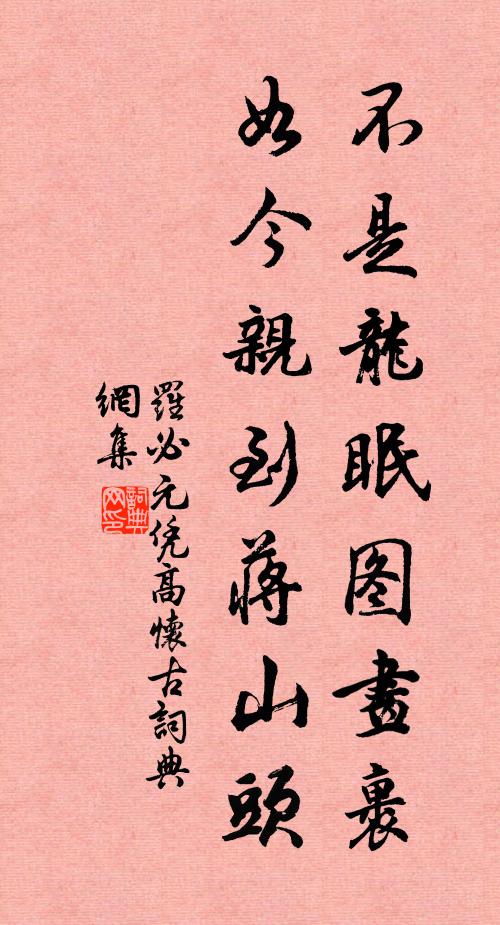 不是龍眠图畫裏
如今親到蔣山頭
羅必元凭高懷古詞典
網集
詞典
网印